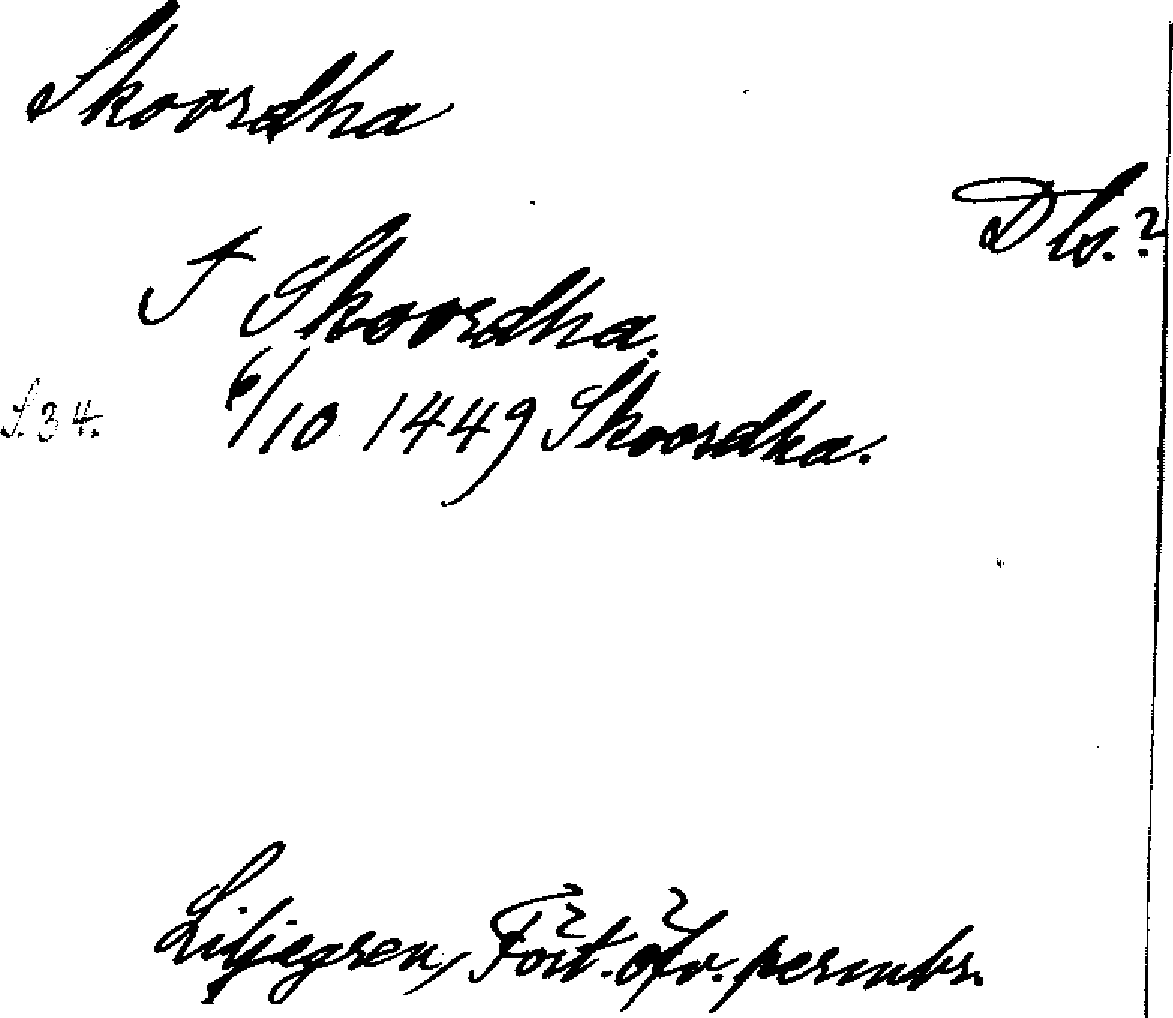 Skoordha
Dls.?
I Skoordha.
S. 34. 6/10 1449 Skoordha.
Liljegren, Fört. öfv. permbr.